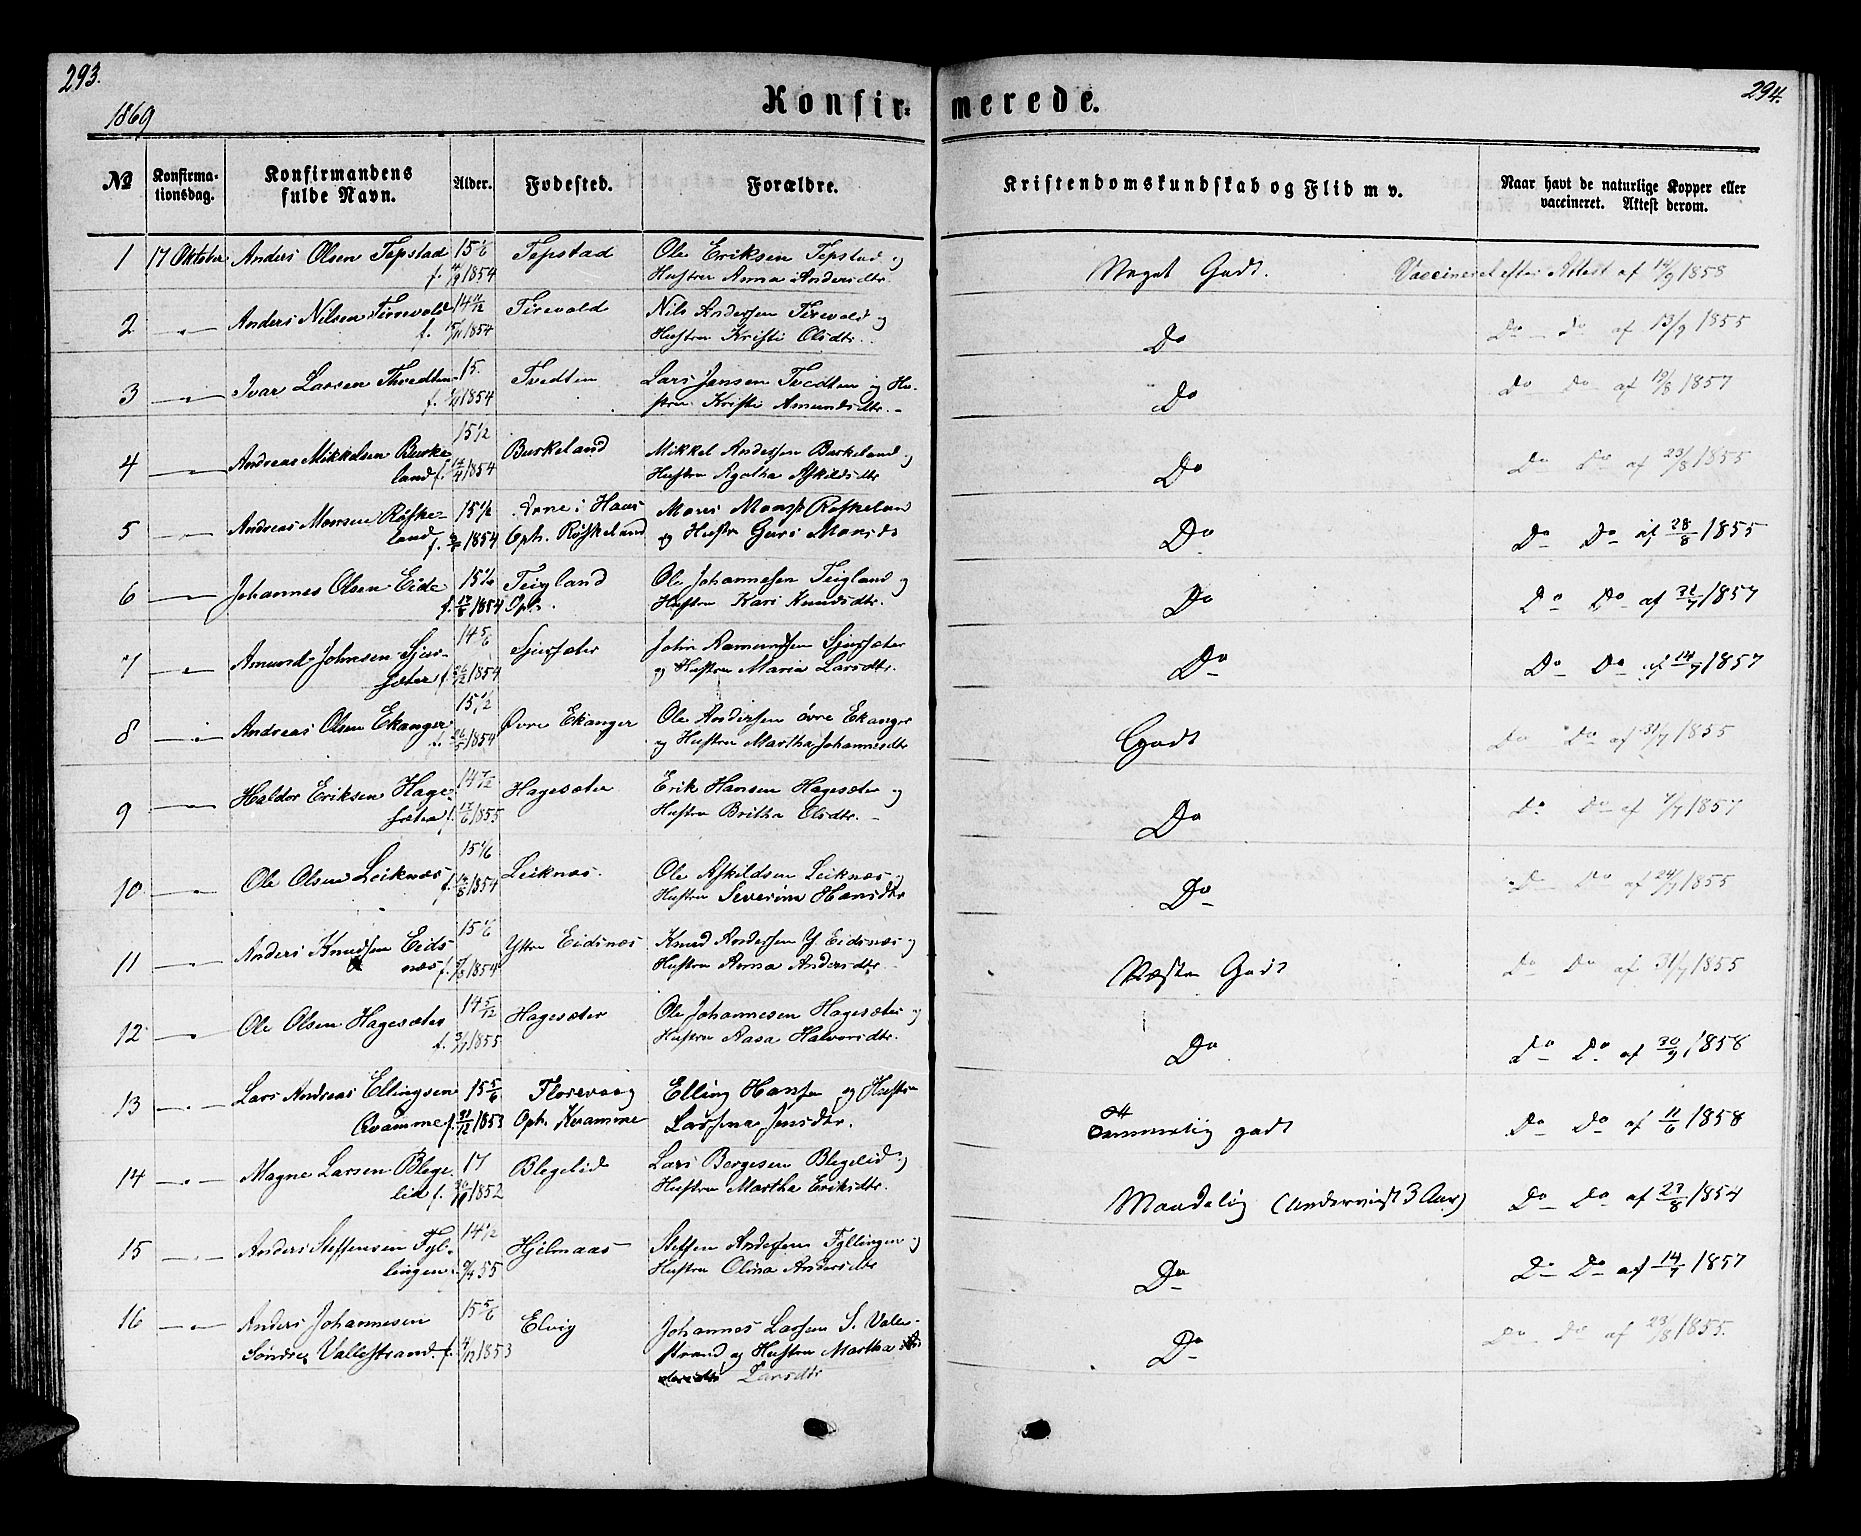 293.
294.
1869
Konfir=
merede.
No
Konfirma-
tionsdag.
Konfirmandens
fulde Navn.
Alder.
Fødested.
Forældre.
Kristendomskundskab og Flid m v.
Naar havt de naturlige Kopper eller
vaccineret. Attest derom.
1 17 Oktober Anders Olsen Tepstad 15 1/6 Tepstad Ole Eriksen Tepstad og Meget Godt. Vaccineret efter Attest af 14/9 1858
f. 1854 Hustru Anna Andersdtr.
2 Anders Nilsen Tirevold 14 11/12 Tirevold Nils Andersen Tirevold og Do Do Do af 13/9 1855
f. 15/11 1854 Hustru Kristi Olsdtr.
3 Ivar Larsen Thvedten 15. Tvedten Lars Jensen Tvedten og Hu- Do Do Do af 19/8 1857
f. 1854 stru Kristi Amundsdtr.
4 Andreas Mikkelsen Burke- 15 1/2 Burkeland Mikkel Andersen Burkeland og Do Do Do af 23/8 1855
land f. 1854 Hustru Agatha Askildsdtr
5 Andreas Monsen Røske- 15 1/2 Arne i Haus Mons Monss Røskeland Do Do Do af 28/8 1855
land f. 1854 Oph. Røskeland og Hustru Guri Monsdr
6 Johannes Olsen Eide 15 1/6 Teigland Ole Johannesen Teigland og Do Do Do af 31/7 1857
f. 17/8 1854 Oph. Hustru Kari Knudsdtr.
7 Amund Johnsen Sjur- 14 5/6 Sjursæter John Amundsen Sjursæter Do Do Do af 14/7 1857
sæter f. 26/12 1854 og Hustru Maria Larsdtr.
8 Andreas Olsen Ekanger 15 1/2 Øvre Ekanger Ole Andersen øvre Ekanger Godt Do Do af 31/7 1855
f. 26/5 1854 og Hustru Martha Johannesdtr
9 Haldor Eriksen Hage- 14 7/12 Hagesæter Erik Hansen Hagesæter og Do Do Do af 7/7 1857
sæter f. 1855 Hustru Britha Olsdtr.
10 Ole Olsen Leiknæs 15 1/6 Leiknæs. Ole Askildsen Leiknæs og Do Do Do af 24/7 1855
f. 1854 Hustru Severine Hansdtr
11 Anders Knudsen Eids- 15 1/6 Yttre Eidsnæs Knud Andersen Y. Eidsnæs og Næsten Godt Do Do af 31/7 1855
næs f. 1854 Hustru Anna Andersdtr.
12 Ole Olsen Hagesæter 14 5/12 Hagesæter Ole Johannesen Hagesæter og Do Do Do af 30/9 1858
f. 1855 Hustru Aasa Halvorsdtr.
13 Lars Andreas Ellingsen 15 5/6 Florevaag Elling Hansen og Hustru Temmelig godt Do Do af 11/6 1858
Qvamme f. 31/12 1853 Oph. Kvamme Larsina Jensdtr.
14 Magne Larsen Blege- 17 Blegelid Lars Børgesen Blegelid og Maadelig (Undervist 3 Aar) Do Do af 27/8 1854
lid f. 1852 Hustru Martha Eriksdtr.
15 Anders Steffensen Fyl- 14 1/2 Hjelmaas Steffen Andersen Fyllingen og Do Do Do af 14/7 1857
lingen 9/4 55 Hustru Olina Andersdtr
16 Anders Johannesen 15 5/6 Elvig Johannes Larsen S. Valle- Do Do Do af 23/8 1855.
Søndre Vallestrand f. 1853 strand og Hustru Martha
Larsdtr